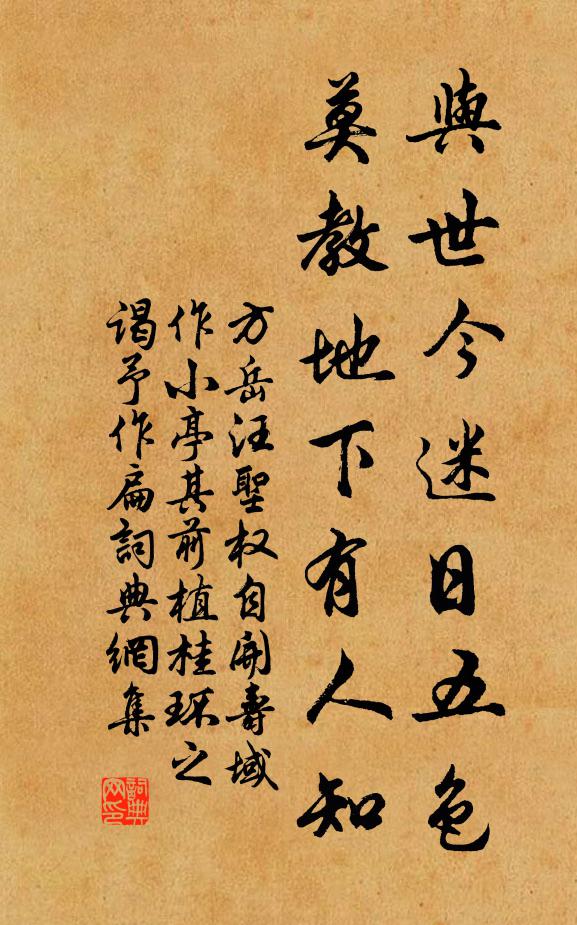 與世今迷日五色
莫教地下有人知
方岳汪聖权自開壽域
作小亭其前植桂環之
謁予作扁詞典網集
詞典
网印